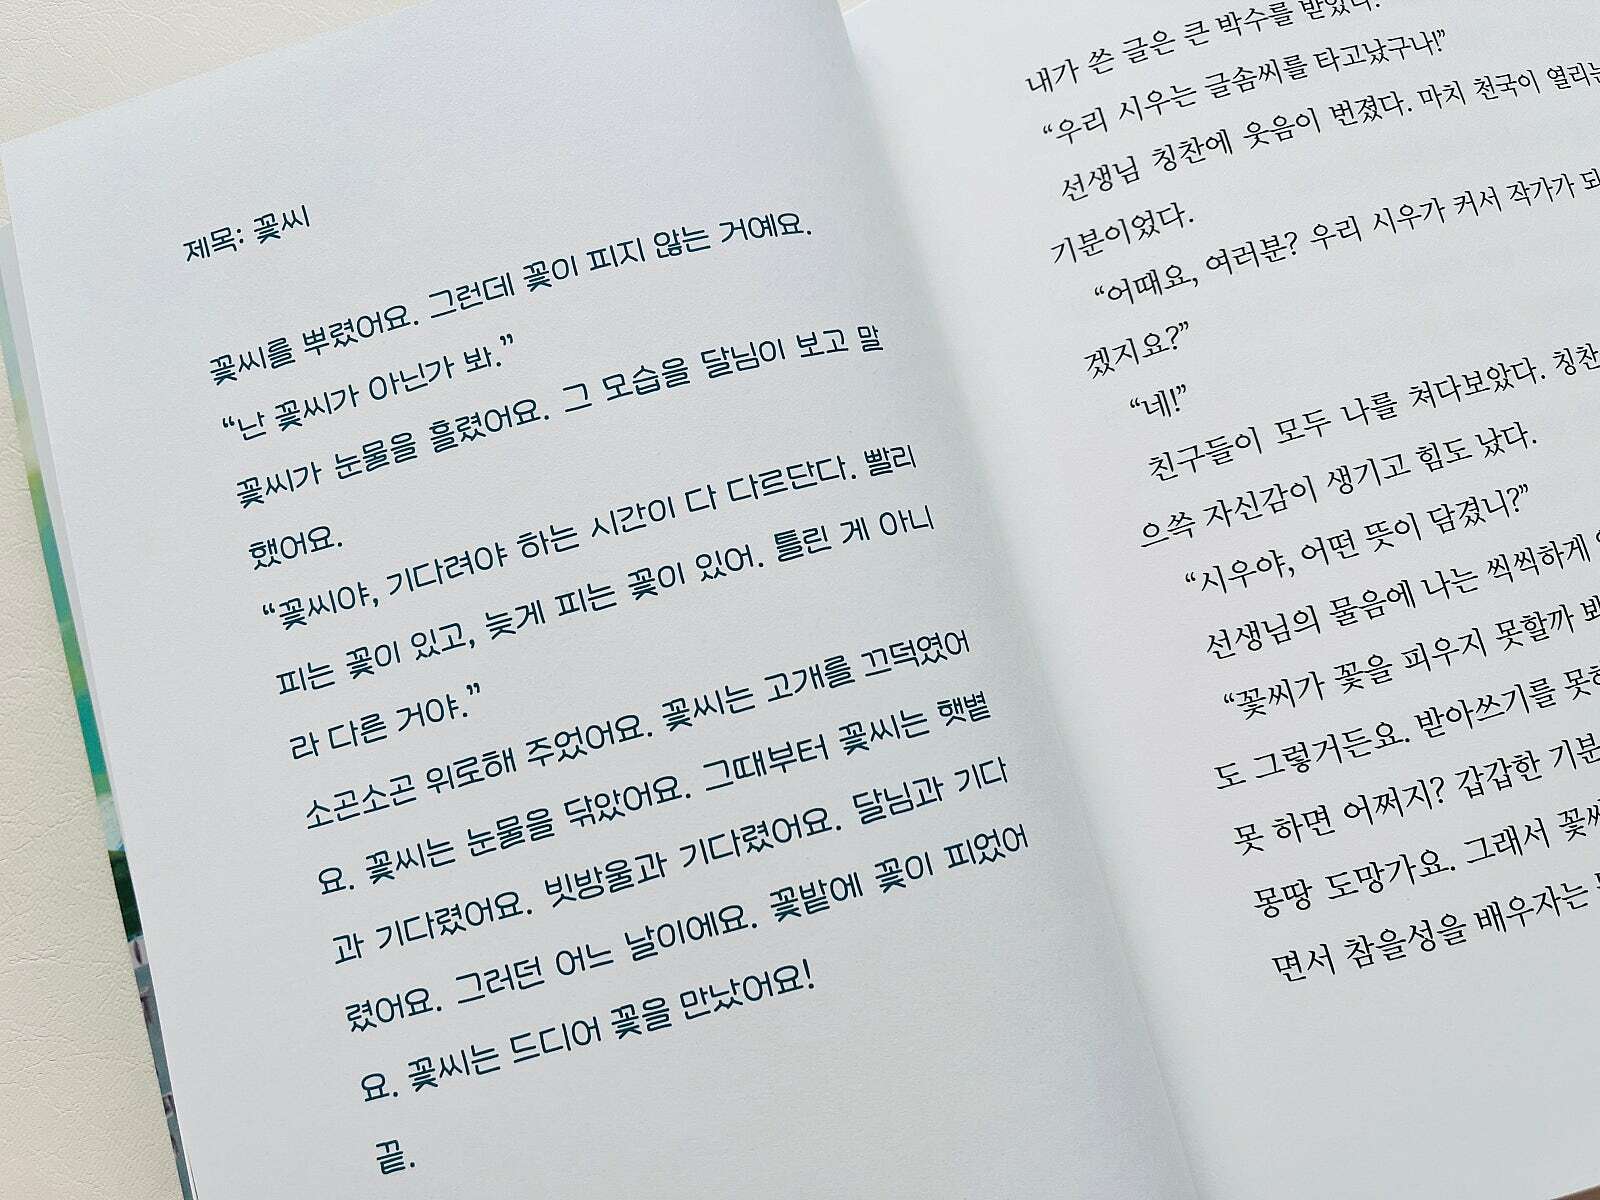 제목: 꽃씨
꽃씨를 뿌렸어요. 그런데 꽃이 피지 않는 거예요.
“난 꽃씨가 아닌가 봐.”
꽃씨가 눈물을 흘렸어요. 그 모습을 달님이 보고 말
했어요.
“꽃씨야, 기다려야 하는 시간이 다 다르단다. 빨리
피는 꽃이 있고, 늦게 피는 꽃이 있어. 틀린 게 아니
라 다른 거야.”
소곤소곤 위로해 주었어요. 꽃씨는 고개를 끄덕였어
요. 꽃씨는 눈물을 닦았어요. 그때부터 꽃씨는 햇볕
과 기다렸어요. 빗방울과 기다렸어요. 달님과 기다
렸어요. 그러던 어느 날이에요. 꽃밭에 꽃이 피었어
요. 꽃씨는 드디어 꽃을 만났어요!
끝.
내가 쓴 글은 큰 박수를 받았다.
“우리 시우는 글솜씨를 타고났구나!”
선생님 칭찬에 웃음이 번졌다. 마치 천국이 열리는
기분이었다.
“어때요, 여러분? 우리 시우가 커서 작가가 되
겠지요?”
“네!”
친구들이 모두 나를 쳐다보았다. 칭찬
으쓱 자신감이 생기고 힘도 났다.
“시우야, 어떤 뜻이 담겼니?”
선생님의 물음에 나는 씩씩하게
“꽃씨가 꽃을 피우지 못할까 봐
도 그렇거든요. 받아쓰기를 못
못 하면 어쩌지? 갑갑한 기분
몽땅 도망가요. 그래서 꽃씨
면서 참을성을 배우자는